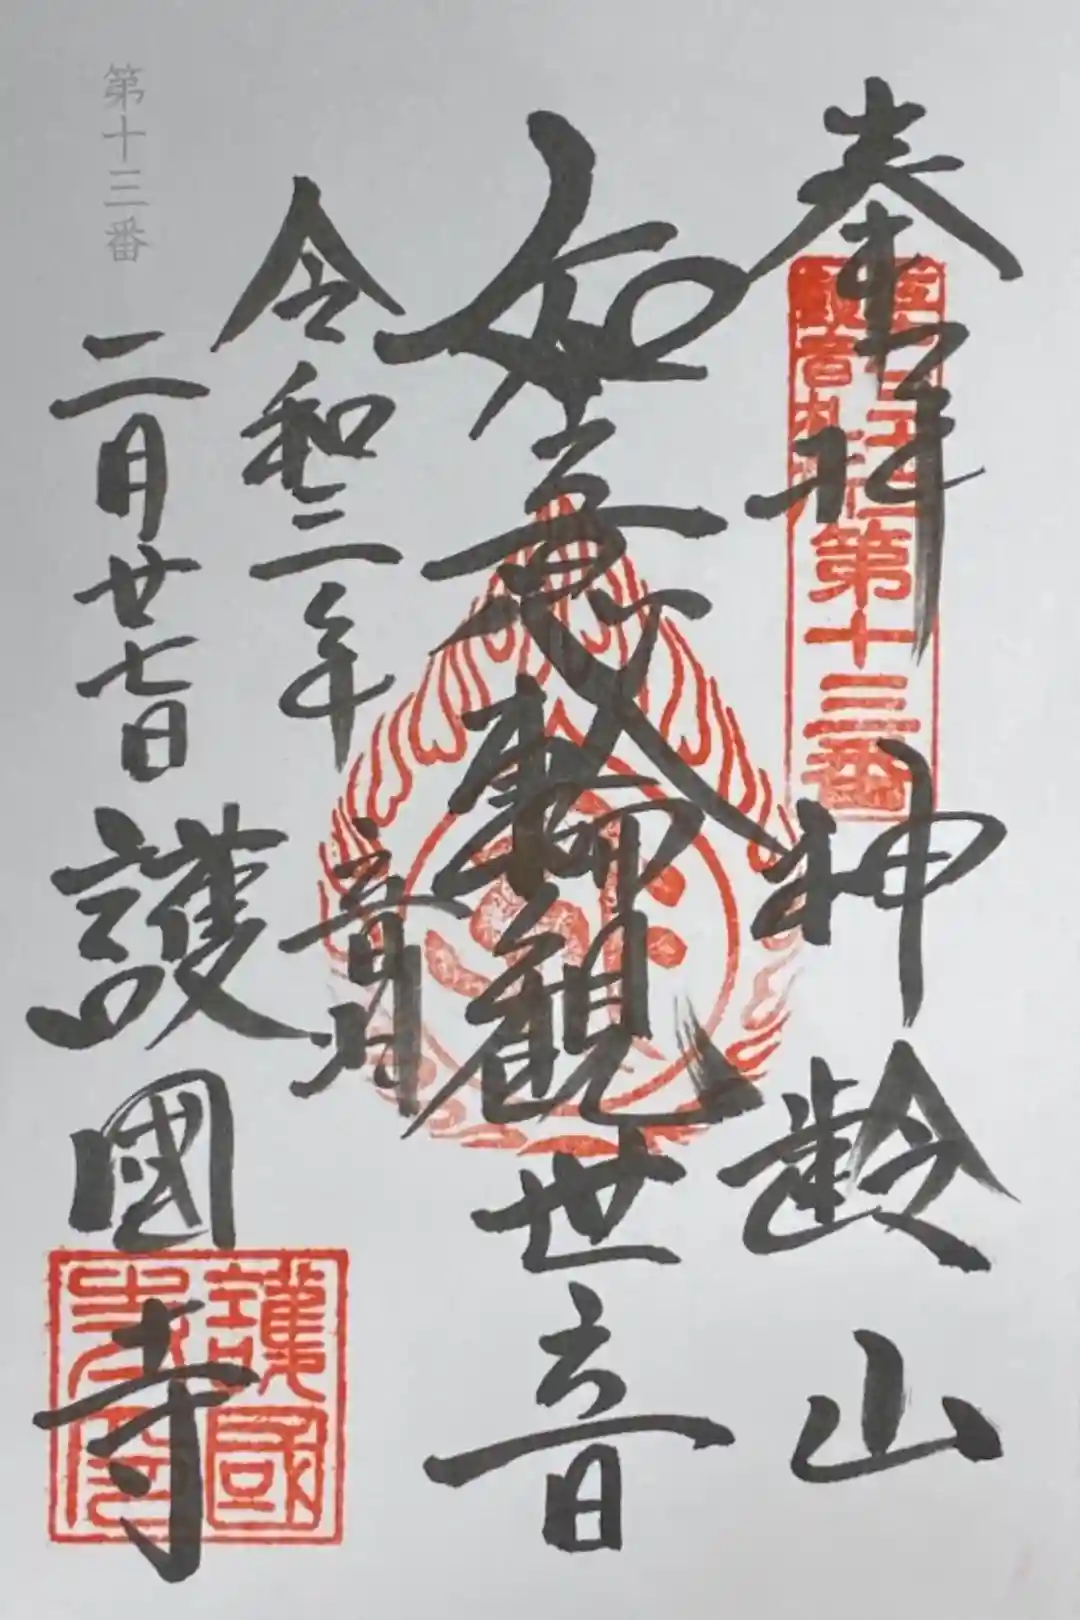 奉拝 神齢山
第十三番
如意輪観世音
令和二年 音羽
第十三番
二月廿七日 護國寺
護國
寺印